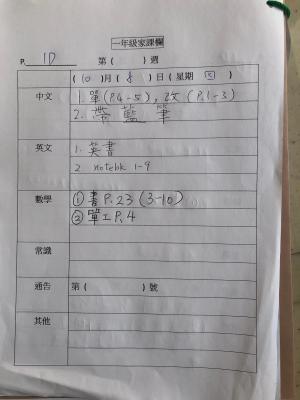 一年級家課欄
P. 1D 第( )週
(10)月(8)日(星期 四)
中文
1. 單(P.4-5), 改(P.1-3)
2. 帶藍筆
英文
1. 英書
2 notebk 1-9
數學
① 書P.23 (3-10)
② 單工P.4
常識
通告 第( )號
其他